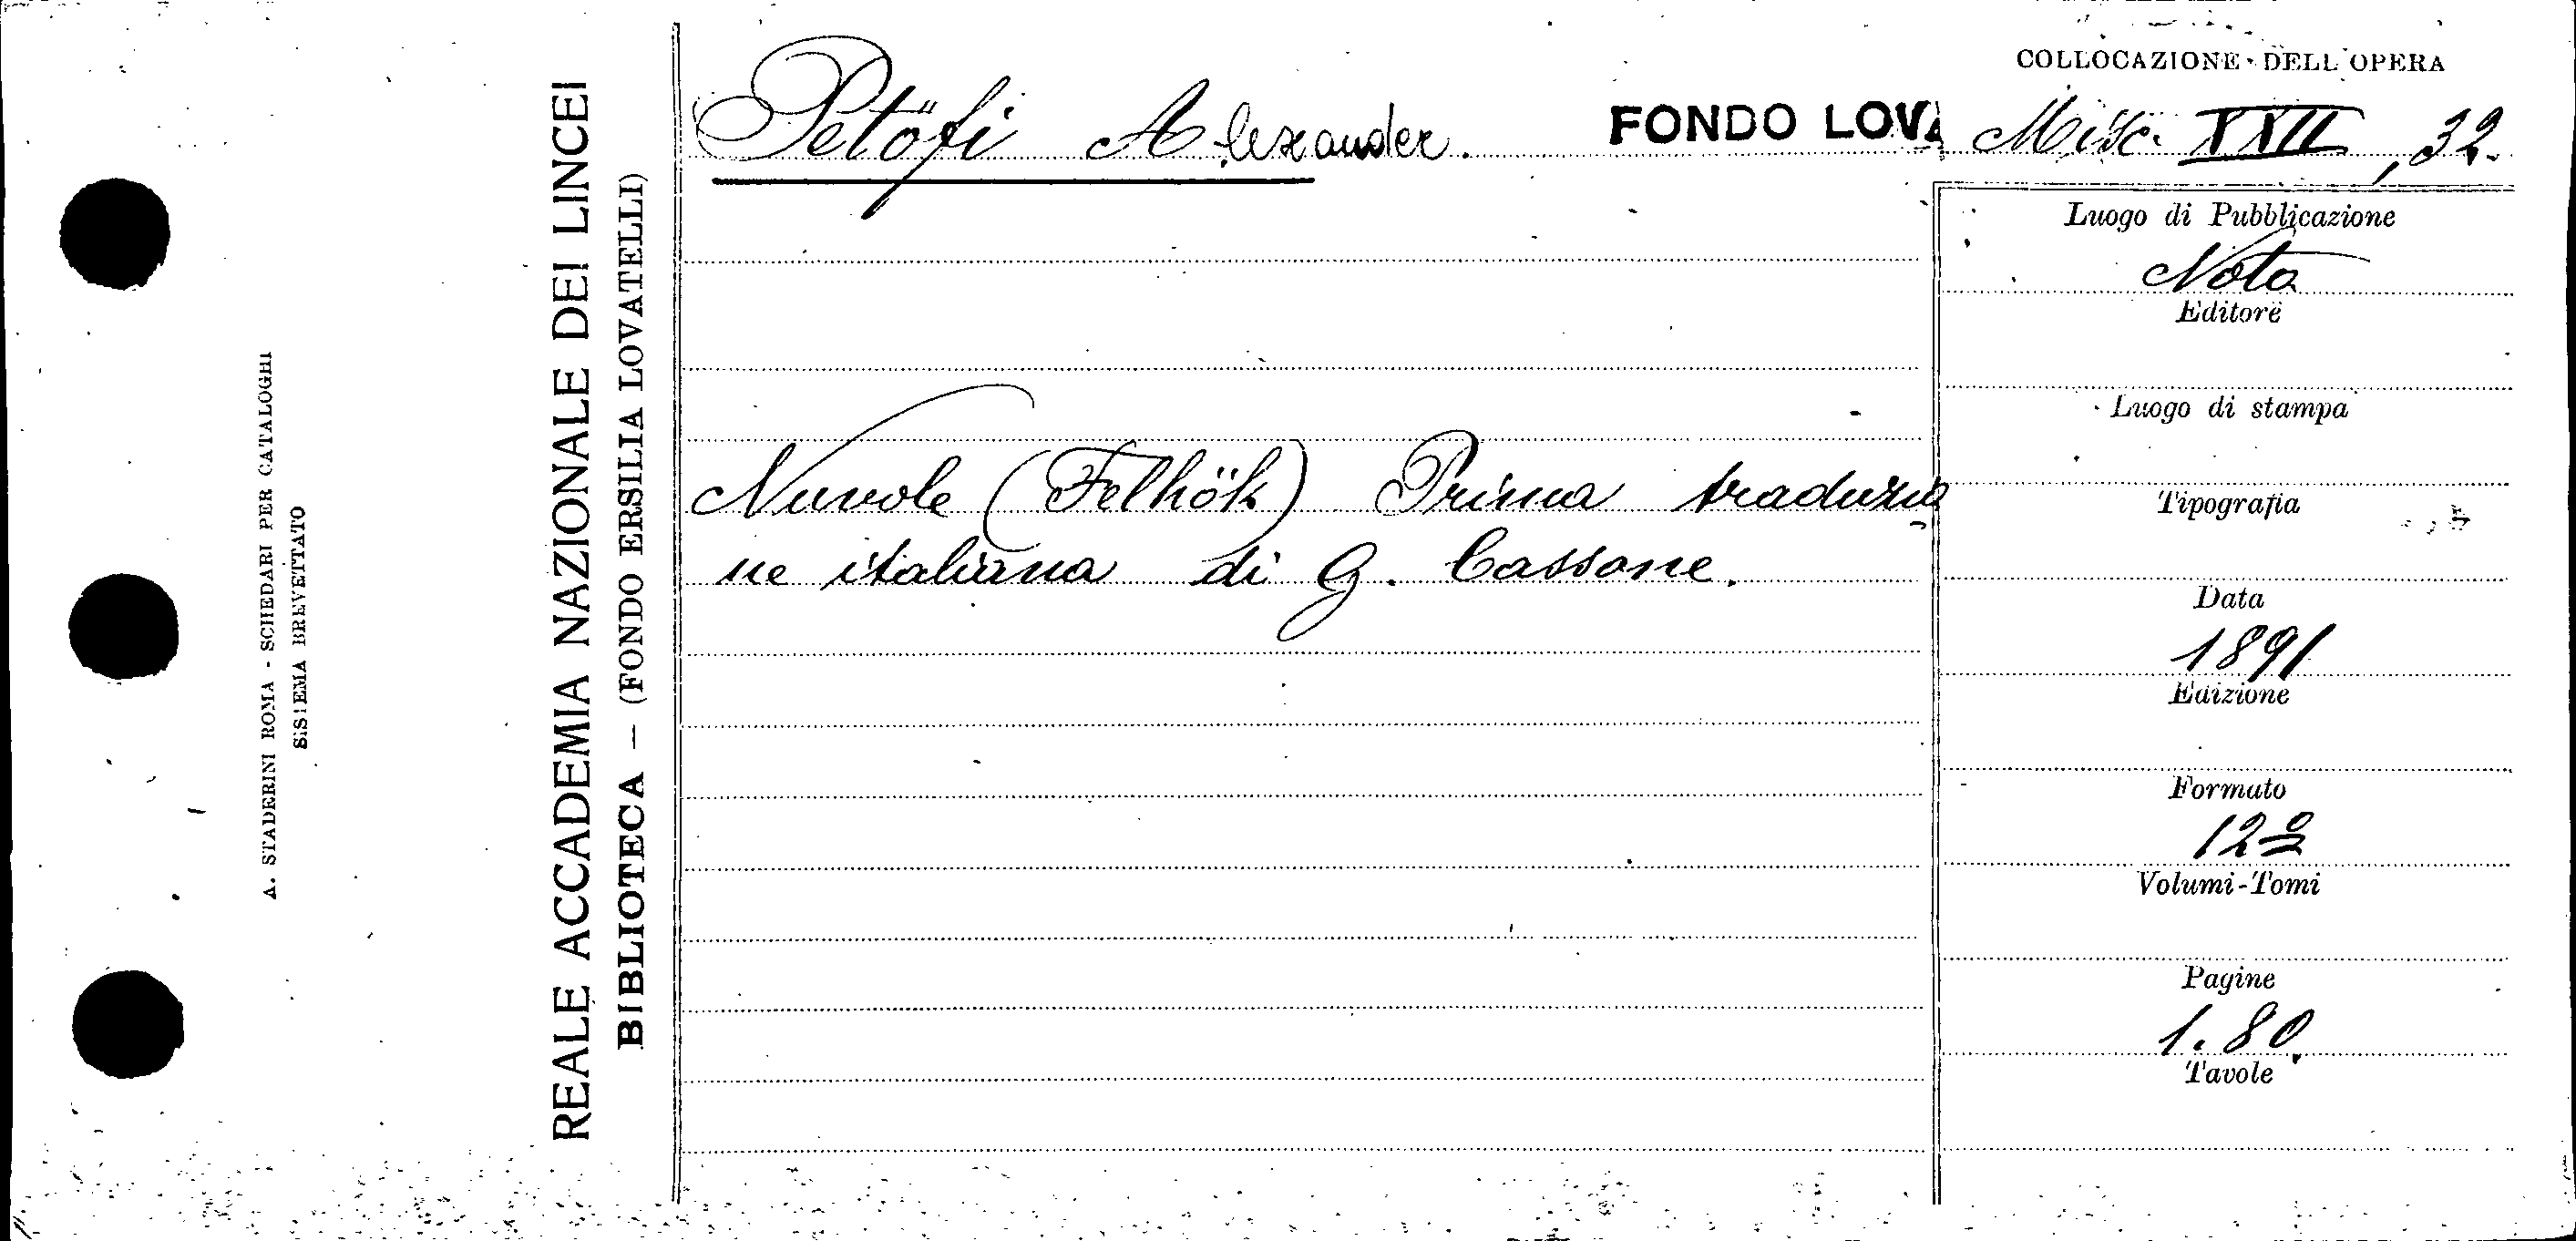 COLLOCAZIONE DELL'OPERA
Petöfi Alexander. FONDO LOVA Misc. XXII, 32.
Luogo di Pubblicazione
Noto
Editore
Luogo di stampa
Nuvole (Felhök) Prima traduzio
ne italiana di G. Cassone.
Tipografia
Data
1891
Edizione
Formato
12º
Volumi-Tomi
Pagine
1.80.
Tavole
REALE ACCADEMIA NAZIONALE DEI LINCEI
BIBLIOTECA — (FONDO ERSILIA LOVATELLI)
A. STADERINI ROMA - SCHEDARI PER CATALOGHI
SISTEMA BREVETTATO